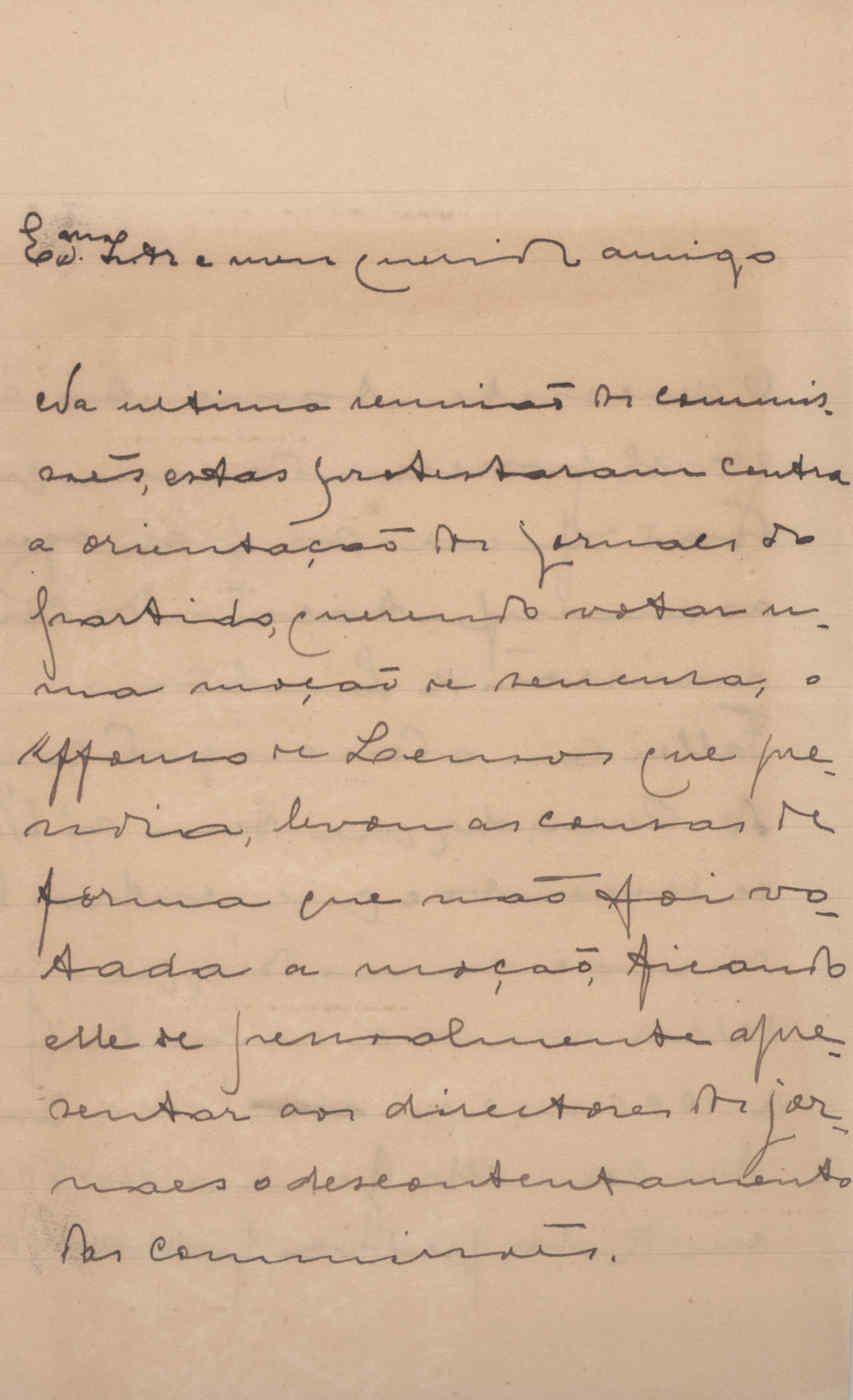 Exmo. Snr e meu querido amigo
Na ultima reunião de commis-
sões, estas protestaram contra
a orientação dos jornaes do
partido, querendo votar u-
ma moção de sensura, o
Affonso de Lemos que pre-
sidia, levou as cousas de
forma que não foi vo-
tada a moção, ficando
elle de pessoalmente apre-
sentar aos directores dos jor-
naes o descontentamento
das commissões.